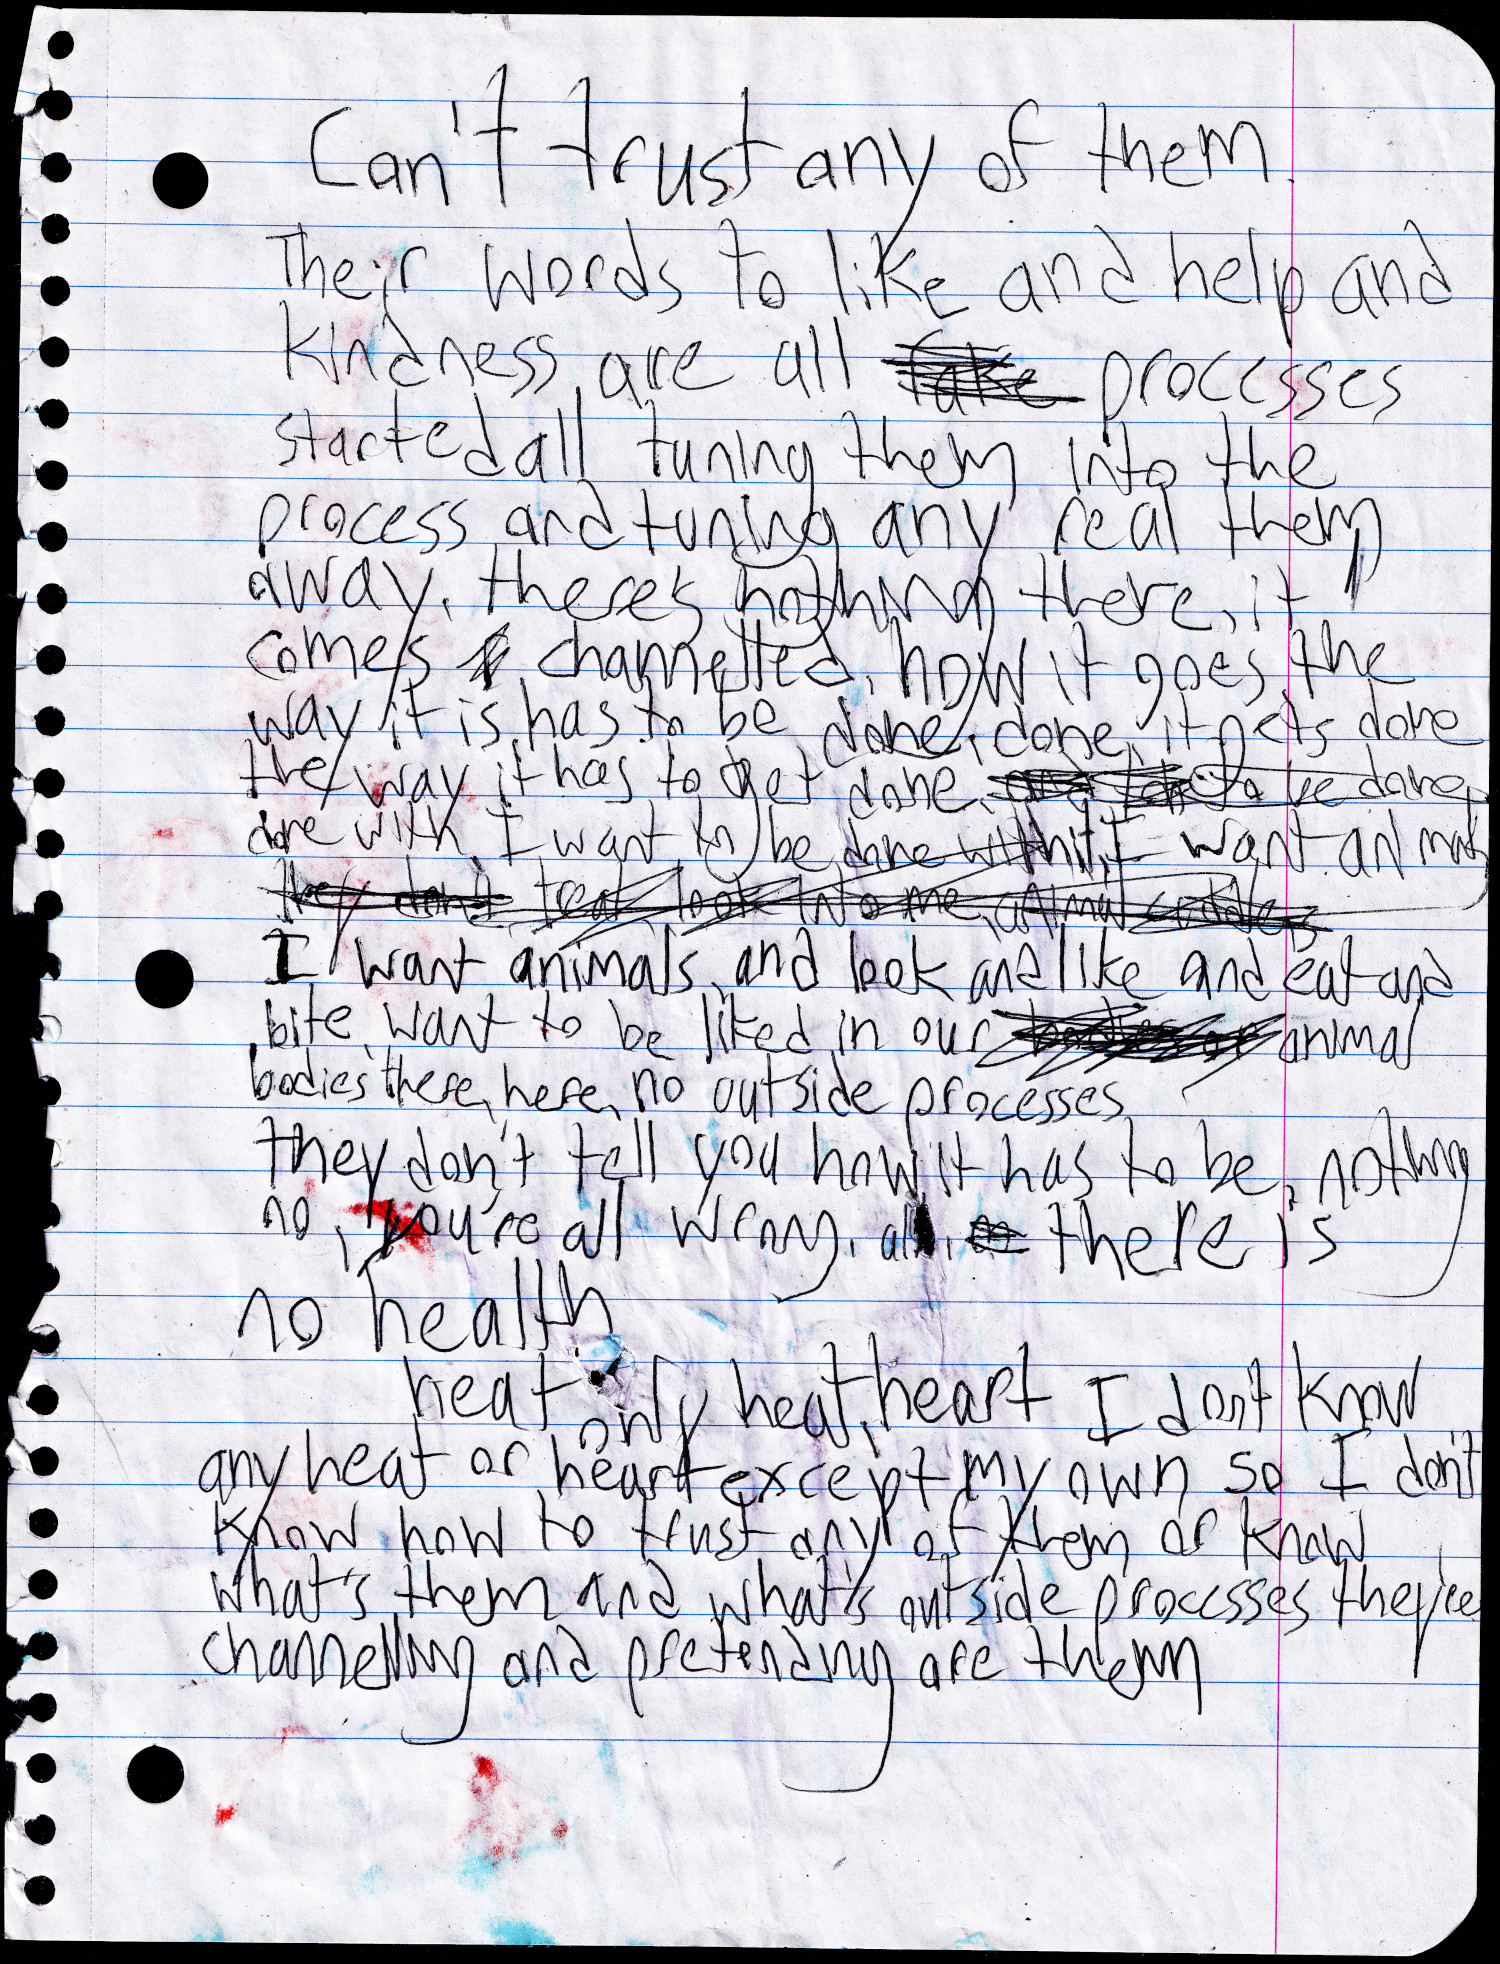 Can't trust any of them.
Their words to like and help and
kindness are all fake processes
started all tuning them into the
process and tuning any real them
away. there's nothing there, it
comes channelled, how it goes, the
way it is has to be done, done, it gets done
the way it has to get done, to be done,
done with I want to be done with it, I want animals
they don't look into me, animal
I want animals, and look and like and eat and
bite, want to be liked in our bodies or animal
bodies there, here, no outside processes
they don't tell you how it has to be, nothing
no, you're all wrong. all, there is
no health
heat only heat, heart I don't know
any heat or heart except my own so I don't
know how to trust any of them or know
what's them and what's outside processes they're
channelling and pretending are them